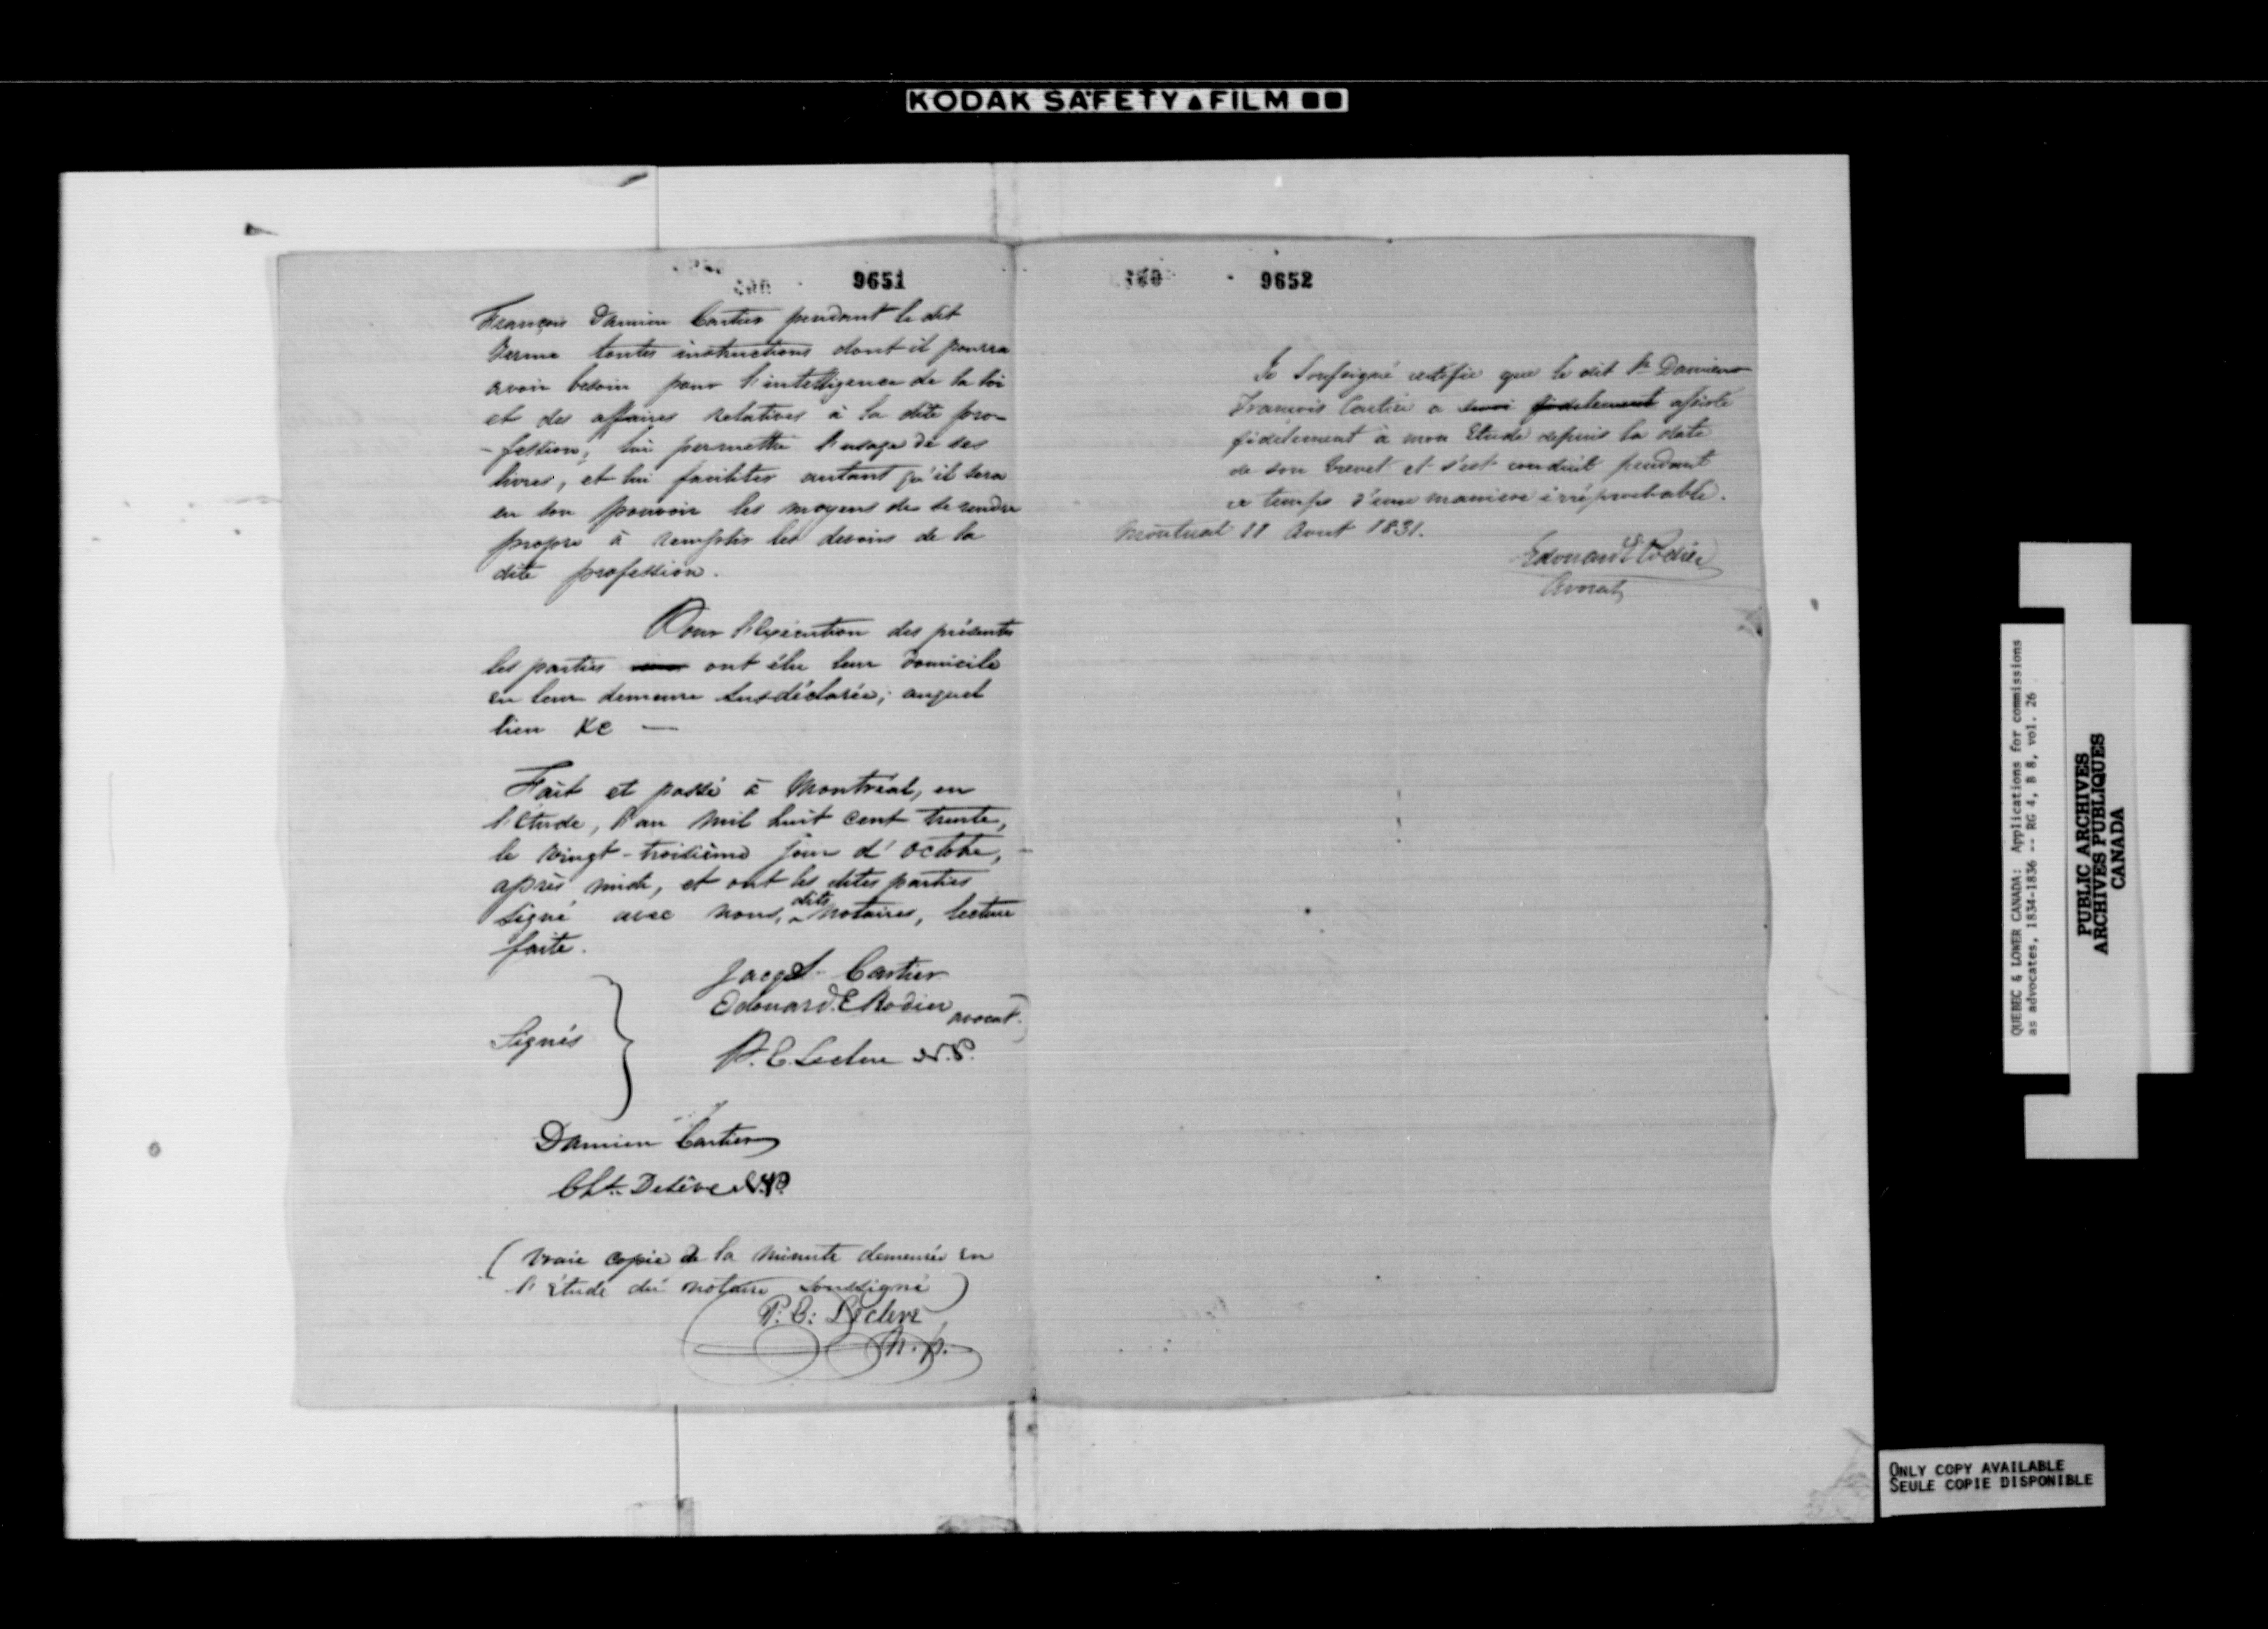 KODAK SAFETY FILM
9651
François Damien Cartier pendant le dit
Terme toutes instructions dont il pourra
avoir besoin pour l'intelligence de la loi
et des affaires relatives à la dite pro-
-fession, lui permettre l'usage de ses
livres, et lui faciliter autant qu'il sera
en son pouvoir les moyens de se rendre
propre à remplir les devoirs de la
dite profession.
Pour l'Exécution des présentes
les parties ont élu leur domicile
en leur demeure susdéclarée; auquel
lieu &c —
Fait et passé à Montréal, en
l'Etude, l'an mil huit cent trente,
le vingt-troisième jour d'octobre,
après midi, et ont les dites parties
signé avec nous, dits notaires, lecture
faite.
Signés
Jacqs. Cartier
Edouard. E Rodier avocat
P. E. Leclere N.P.
Damien Cartier
Chs. Delève N.P.
(Vraie copie de la minute demeurée en
l'étude du notaire soussigné)
P: E: Leclere
N. p.
9652
Je Soussigné certifie que le dit Sr. Damien
François Cartier a suivi fidelement assisté
fidelement à mon Etude depuis la date
de son Brevet et s'est conduit pendant
ce temps d'une maniere irréprochable.
Montreal 11 Aout 1831.
Edouard E Rodier
Avocat
QUEBEC & LOWER CANADA: Applications for commissions
as advocates, 1834-1836 -- RG 4, B 8, vol. 26
PUBLIC ARCHIVES
ARCHIVES PUBLIQUES
CANADA
ONLY COPY AVAILABLE
SEULE COPIE DISPONIBLE